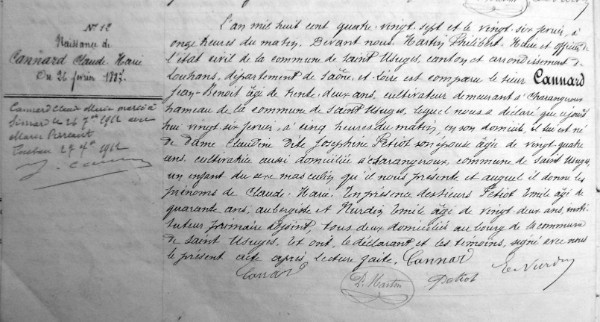 N° 12
Naissance de
Cannard Claude Marie
Du 26 février 1887.
Cannard Claude Marie marié à
Simard le 26 7bre 1912 avec
Marie
27 7bre 1912
L'an mil huit cent quatre-vingt-sept et le vingt-six février, à
onze heures du matin, Devant nous Martin Philibert, Maire et officier de
l'état civil de la commune de Saint Usuges, canton et arrondissement de
Louhans, département de Saône et Loire est comparu le sieur Cannard
Jean-Benoit âgé de trente-deux ans, cultivateur demeurant à Charangeroux
hameau de la commune de Saint Usuges, lequel nous a déclaré que ce jour d'
hui vingt six février, à cinq heures du matin, en son domicile, il lui est né
de Dame Claudine dite Josephine Petiot son épouse âgée de vingt-quatre
ans, cultivatrice aussi domiciliée à Charangeroux, commune de Saint Usuges,
un enfant du sexe masculin qu'il nous présente et auquel il donne les
prénoms de Claude-Marie. En présence des sieurs Petiot Emile âgé de
quarante ans, aubergiste et Nurdin Emile âgé de vingt deux ans, insti-
tuteur primaire adjoint, tous deux domiciliés au bourg de la commune
de Saint Usuges, Et ont, le déclarant et les témoins, signé avec nous
le présent acte après lecture faite. Cannard
Cannard Ph. Martin Petiot E. Nurdin